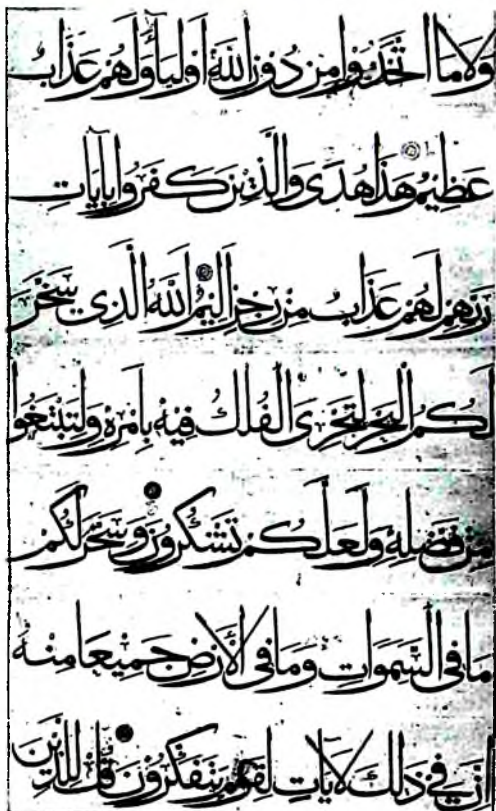 وَلَا مَا اتَّخَذُوا مِن دُونِ اللَّهِ أَوْلِيَاءَ وَلَهُمْ عَذَابٌ
عَظِيمٌ هَذَا هُدًى وَالَّذِينَ كَفَرُوا بِآيَاتِ
رَبِّهِمْ لَهُمْ عَذَابٌ مِن رِجْزٍ أَلِيمٌ اللَّهُ الَّذِي سَخَّرَ
لَكُمُ الْبَحْرَ لِتَجْرِيَ الْفُلْكُ فِيهِ بِأَمْرِهِ وَلِتَبْتَغُوا
مِن فَضْلِهِ وَلَعَلَّكُمْ تَشْكُرُونَ وَسَخَّرَ لَكُمْ
مَا فِي السَّمَوَاتِ وَمَا فِي الْأَرْضِ جَمِيعًا مِنْهُ
إِنَّ فِي ذَلِكَ لَآيَاتٍ لِقَوْمٍ يَتَفَكَّرُونَ قُلْ لِلَّذِينَ